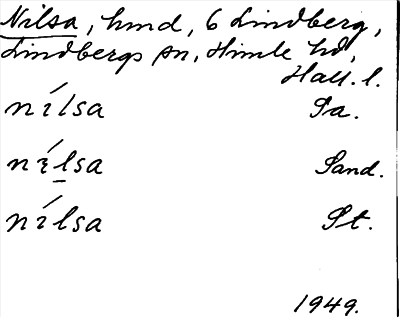 Nilsa, hmd, 6 Lindberg,
Lindbergs sn, Himle hd,
Hall. l.
nílsa Sa.
nílsa Sand.
nílsa St.
1949.